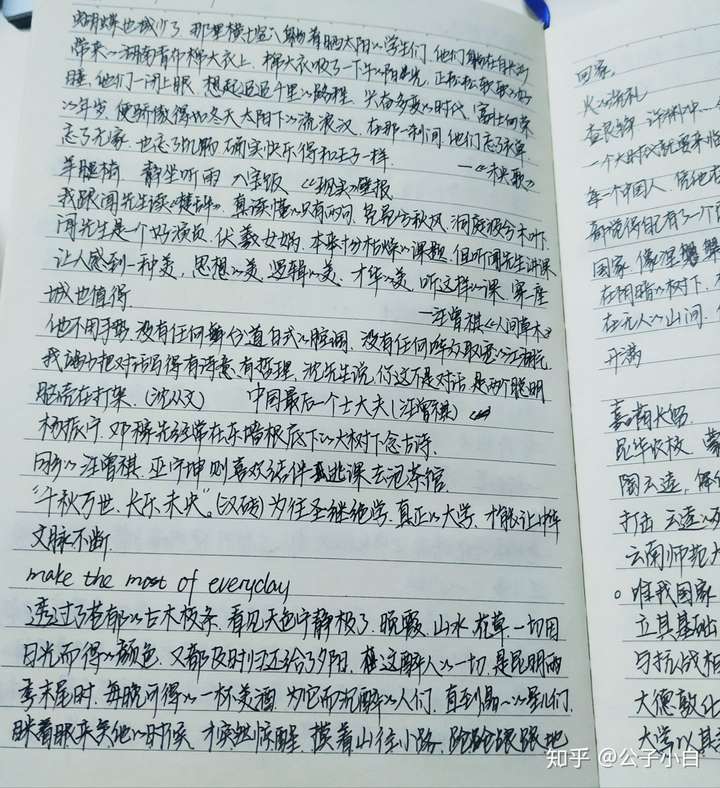 蝴蝶也减少了 那里横七竖八躺着晒太阳的学生们,他们躺在自己的
带来的湖南青布棉大衣上,棉大衣吸了一下午的阳光,正松松软软的
睡,他们一闭上眼,想起迢迢千里的路程,兴奋多变的时代,富壮向荣
的年岁,便骄傲得如冬天太阳下的流浪汉,在那一刹间,他们忘了衣单,
忘了无家,也忘了饥肠,确实快乐得和王子一样. —《未央歌》
静坐听雨 八宝饭 《现实》壁报
我跟闻先生读《楚辞》,真读懂的只有两句,袅袅兮秋风,洞庭波兮木叶下.
闻先生是个好演员,伏羲女娲,本来十分枯燥的课题,但听闻先生讲课
让人感到一种美,思想的美,逻辑的美,才华的美,听这样的课,穿一座
城也值得. —汪曾祺《人间草木》
他不用手势,没有任何舞台道白式的腔调,没有任何哗众取宠的江湖气
我竭力把对话写得有诗意,有哲理,沈先生说,你这不是对话,是两个聪明
脑壳在打架.(沈从文) 中国最后一个士大夫(汪曾祺)
杨振宁、邓稼先经常在东墙根底下的大树下念古诗.
同乡的汪曾祺、巫宁坤则喜欢结伴逃课去泡茶馆.
"千秋万世,长乐未央"。(汉砖) 为往圣继绝学,真正的大学,才能让中华
文脉不断.
make the most of everyday
透过了苍郁的古木枝条,看见天色宁静极了,晚霞、山水、花草,一切因
日光而得的颜色,又都及时归还给了夕阳,这醉人的一切,是昆明雨
季末尾时,每晚可得的一杯美酒,为它而沉醉的人们,直到的星儿们,
眯着眼来笑他的时候,才突然惊醒,摸着山径小路,跄跄踉踉地
回家.
火的洗礼
查良铮 许渊冲
一个大时代就要来临
每一个中国人
都觉得自己有了一个
国家,像涅槃
在阴暗的树下,
在无人的山间,
开满
喜
昆华农校
陶云逵
打击 云逵
云南师范大
。唯我国家
立其基础
与抗战相
大德敦化
大学以其
知乎 @公子小白